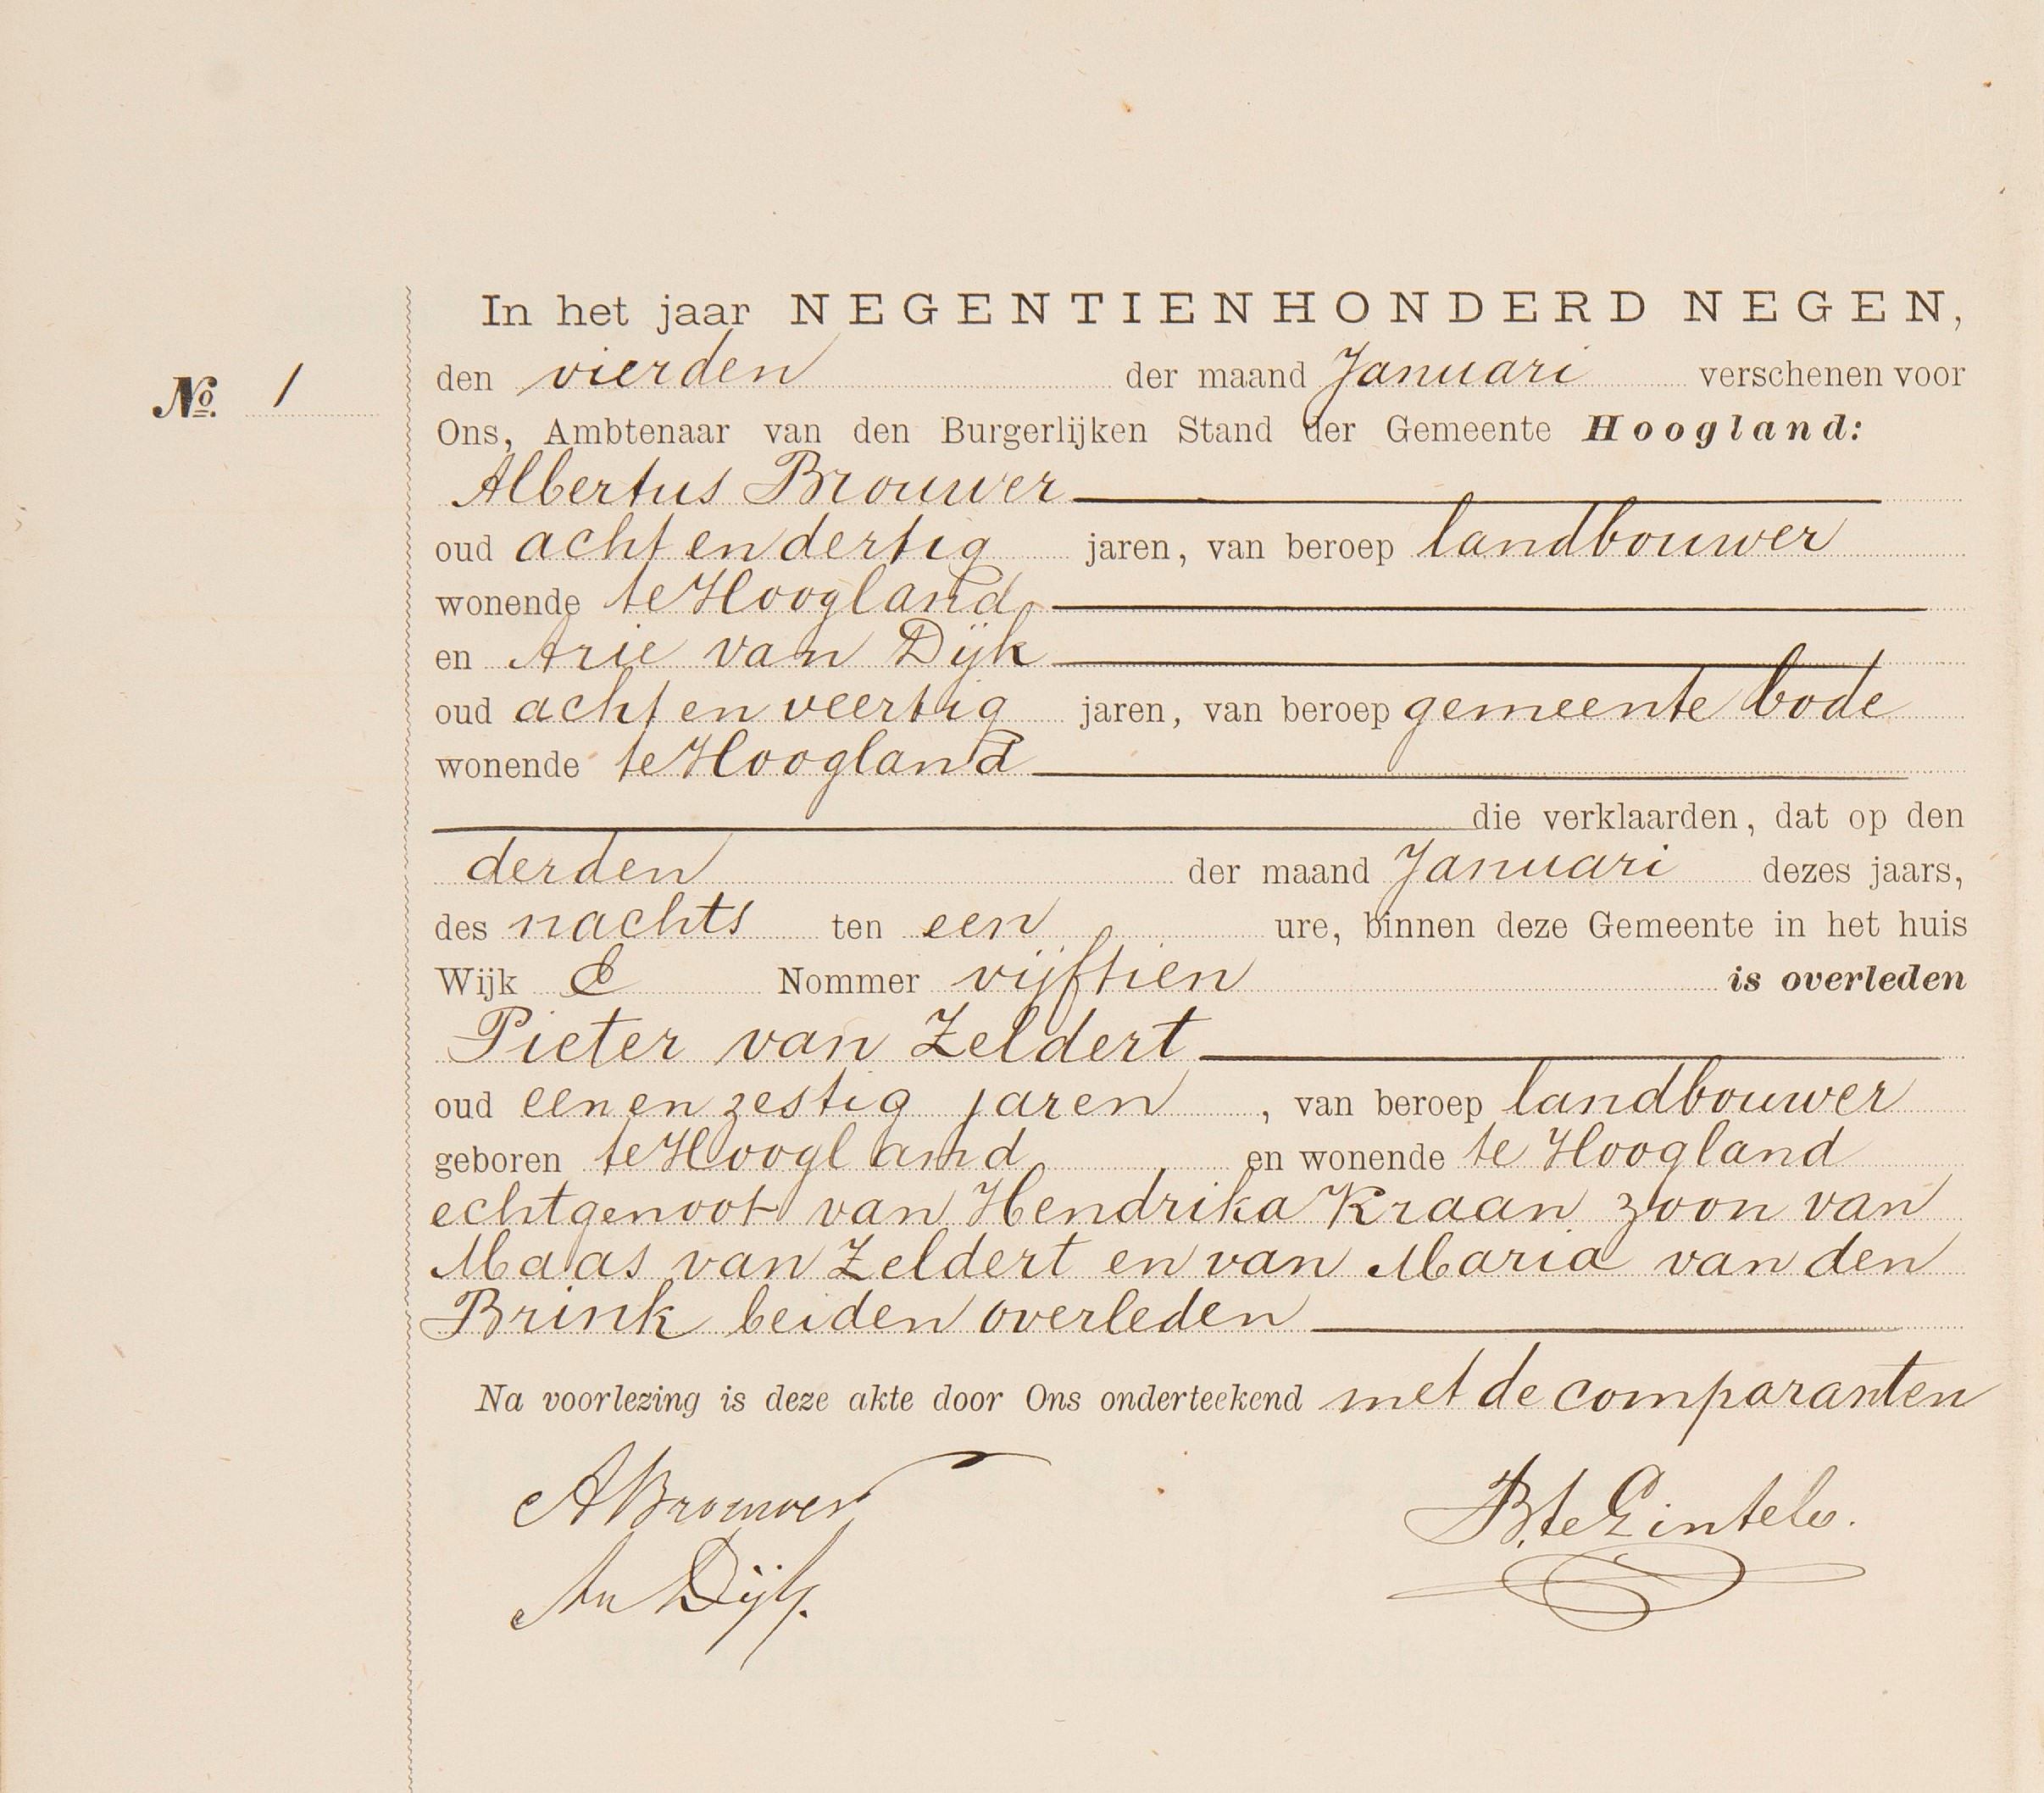 In het jaar NEGENTIENHONDERD NEGEN,
No. 1 den vierden der maand Januari verschenen voor
Ons, Ambtenaar van den Burgerlijken Stand der Gemeente Hoogland:
Albertus Brouwer
oud acht en dertig jaren, van beroep landbouwer
wonende te Hoogland
en Arie van Dijk
oud acht en veertig jaren, van beroep gemeente bode
wonende te Hoogland
die verklaarden, dat op den
derden der maand Januari dezes jaars,
des nachts ten een ure, binnen deze Gemeente in het huis
Wijk Nommer vijftien is overleden
Pieter van Zeldert
oud een en zestig jaren, van beroep landbouwer
geboren te Hoogland en wonende te Hoogland
echtgenoot van Hendrika Kraan zoon van
Maas van Zeldert en van Maria van den
Brink beiden overleden
Na voorlezing is deze akte door Ons onderteekend met de comparanten
ABrouwer
Av Dijk.